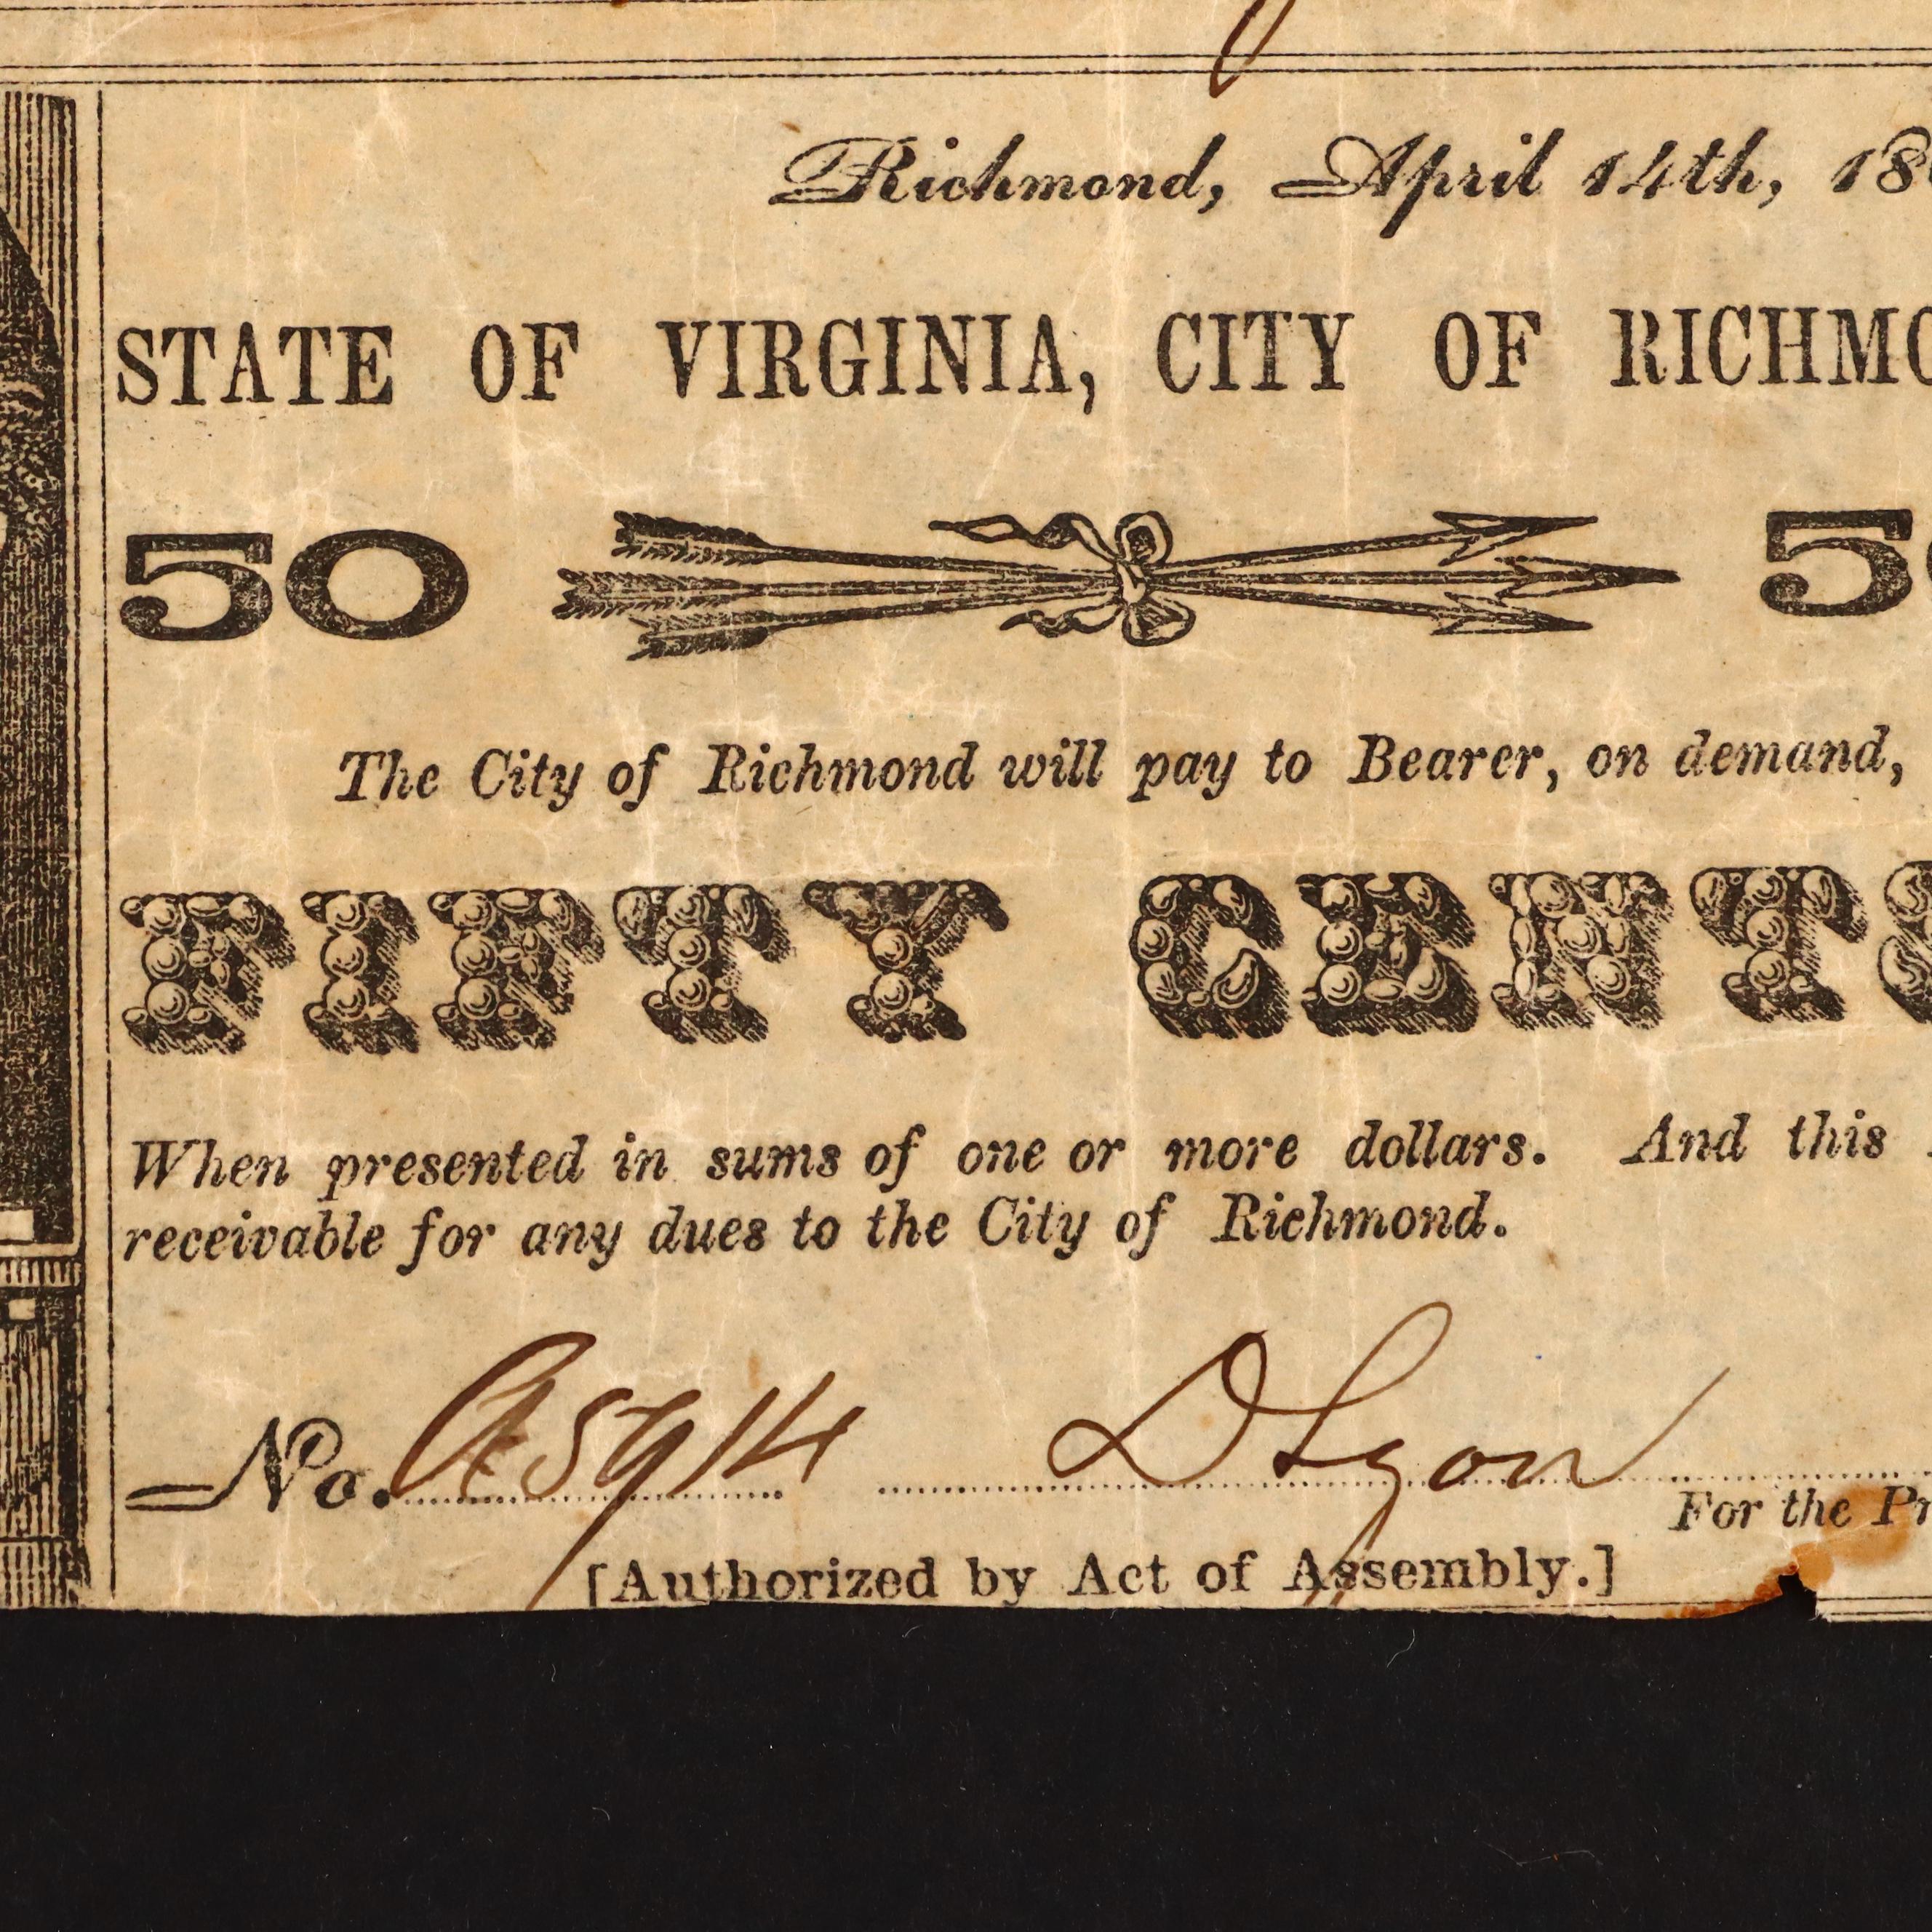 Richmond, April 14th, 18
STATE OF VIRGINIA, CITY OF RICHMO
50 5
The City of Richmond will pay to Bearer, on demand,
FIFTY CENTS
When presented in sums of one or more dollars. And this
receivable for any dues to the City of Richmond.
No. A5914 D Lyon
For the Pr
[Authorized by Act of Assembly.]